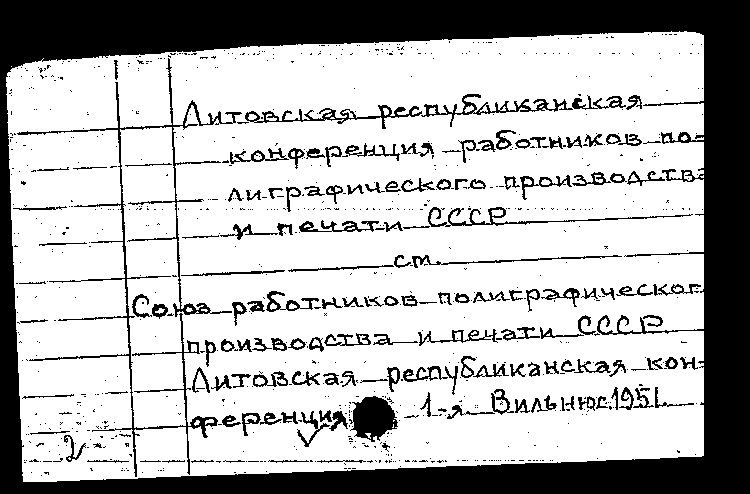 Литовская республиканская
конференция работников по-
лиграфического производства
и печати СССР
см.
Союз работников полиграфического
производства и печати СССР
Литовская республиканская кон-
ференция 1-я Вильнюс 1951.
2